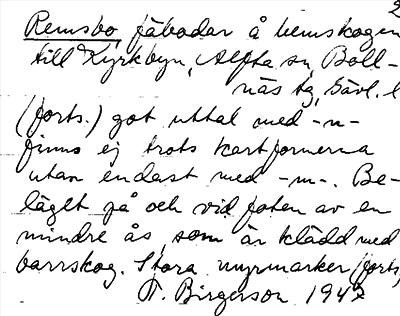 2
Remsbo, fäbodar å hemskogen
till Kyrkbyn, Alfta sn, Boll-
näs tg, Gävl. l
(forts.) got uttal med -n-
finns ej trots kartformerna
utan endast med -m-. Be-
läget på och vid foten av en
mindre ås, som är klädd med
barrskog. Stora myrmarker (forts.
T. Birgerson 1947